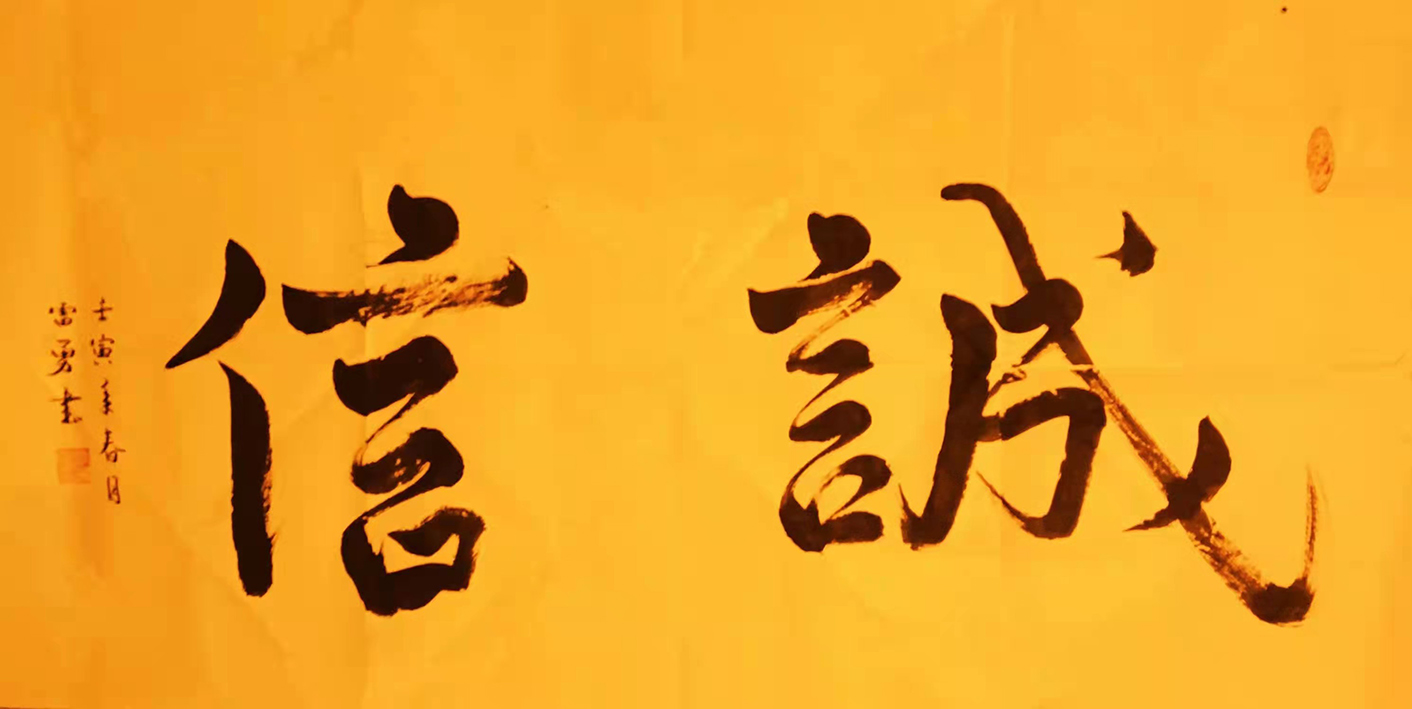 誠信
壬寅年春月
雷勇書